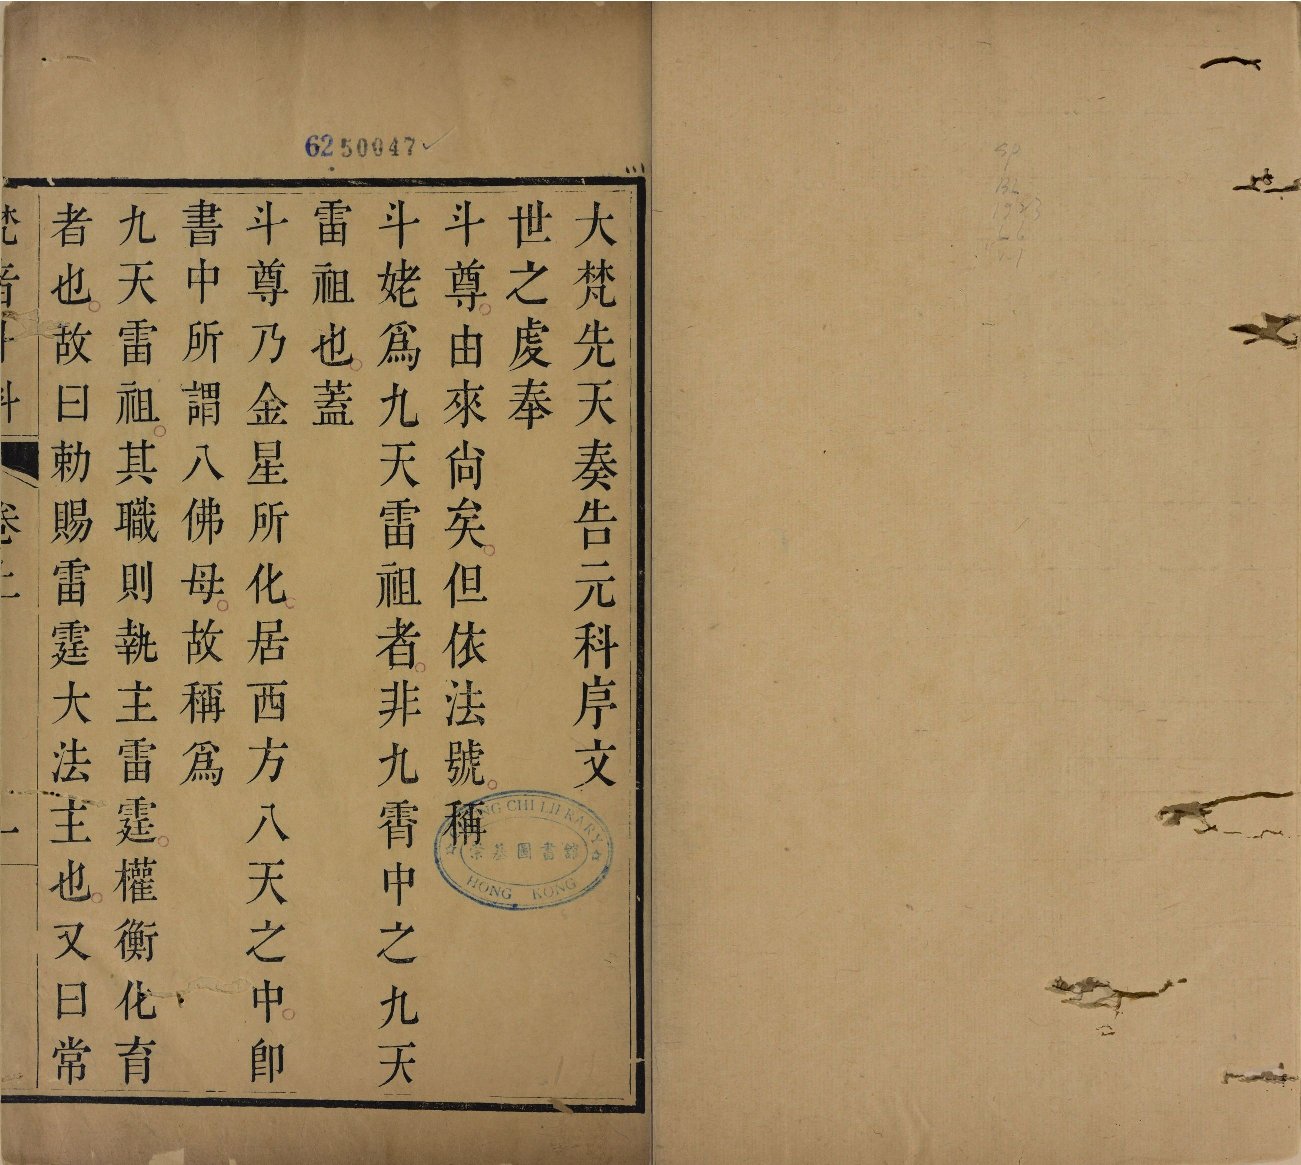 大梵先天奏告元科序文
世之虔奉
斗尊由來尙矣但依法號稱
斗姥爲九天雷祖者非九霄中之九天
雷祖也蓋
斗尊乃金星所化居西方八天之中卽
書中所謂八佛母故稱爲
九天雷祖其職則執主雷霆權衡化育
者也故曰勅賜雷霆大法主也又曰常
梵音斗科
卷上
一
6250047
CHI LIBRARY
榮基圖書館
HONG KONG